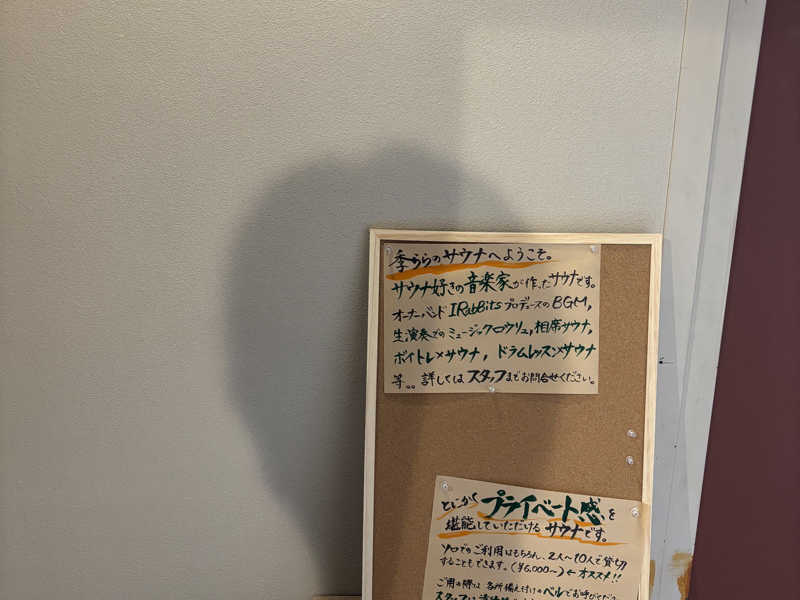 季ららのサウナへようこそ。
サウナ好きの音楽家が作ったサウナです。
オーナーバンド IRabBits プロデュースのBGM,
生演奏でのミュージックロウリュ, 相席サウナ,
ボイトレ×サウナ, ドラムレッスン×サウナ
等。。詳しくはスタッフまでお問合せください。
とにかくプライベート感を
堪能していただけるサウナです。
ソロでのご利用はもちろん、2人〜10人で貸切
することもできます。(¥6,000〜) ← オススメ!!
ご用の際は 各所備え付けのベルでお呼びくださ
スタッフは